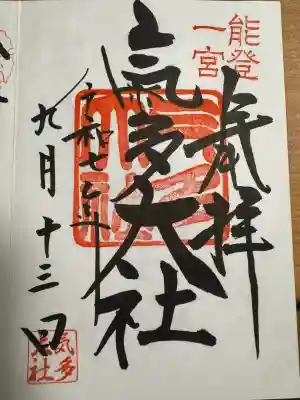 能登
一宮
奉拝
氣多大社
令和七年
九月十三日
気多
大社